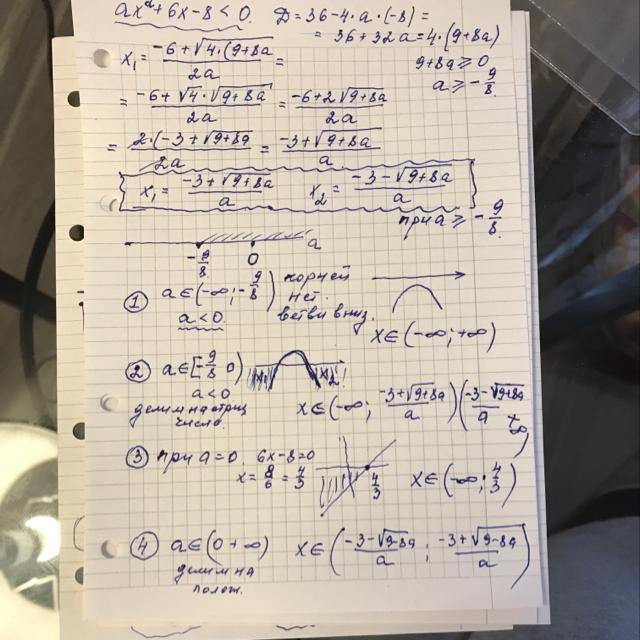 ax² + 6x - 8 < 0. D = 36 - 4·a·(-8) =
= 36 + 32a = 4·(9+8a)
x₁ = (-6 + √(4·(9+8a)) / 2a =
9 + 8a ≥ 0
a ≥ -9/8.
= (-6 + √4·√(9+8a)) / 2a = (-6 + 2√(9+8a)) / 2a
= 2·(-3 + √(9+8a) / 2a = (-3 + √(9+8a)) / a
x₁ = (-3 + √(9+8a)) / a x₂ = (-3 - √(9+8a)) / a
при a ≥ -9/8.
-9/8 0 a
① a ∈ (-∞; -9/8) корней
нет.
a < 0. ветви вниз.
x ∈ (-∞; +∞)
② a ∈ [-9/8 0) x₁ x₂
a < 0
делим на отриц
число.
x ∈ (-∞; (-3 + √(9+8a)) / a) ((-3 - √(9+8a)) / a +∞)
③ при a = 0. 6x - 8 = 0
x = 8/6 = 4/3
4/3
x ∈ (-∞; 4/3)
④ a ∈ (0 +∞) x ∈ ((-3 - √(9-8a)) / a ; (-3 + √(9-8a)) / a)
делим на
полож.